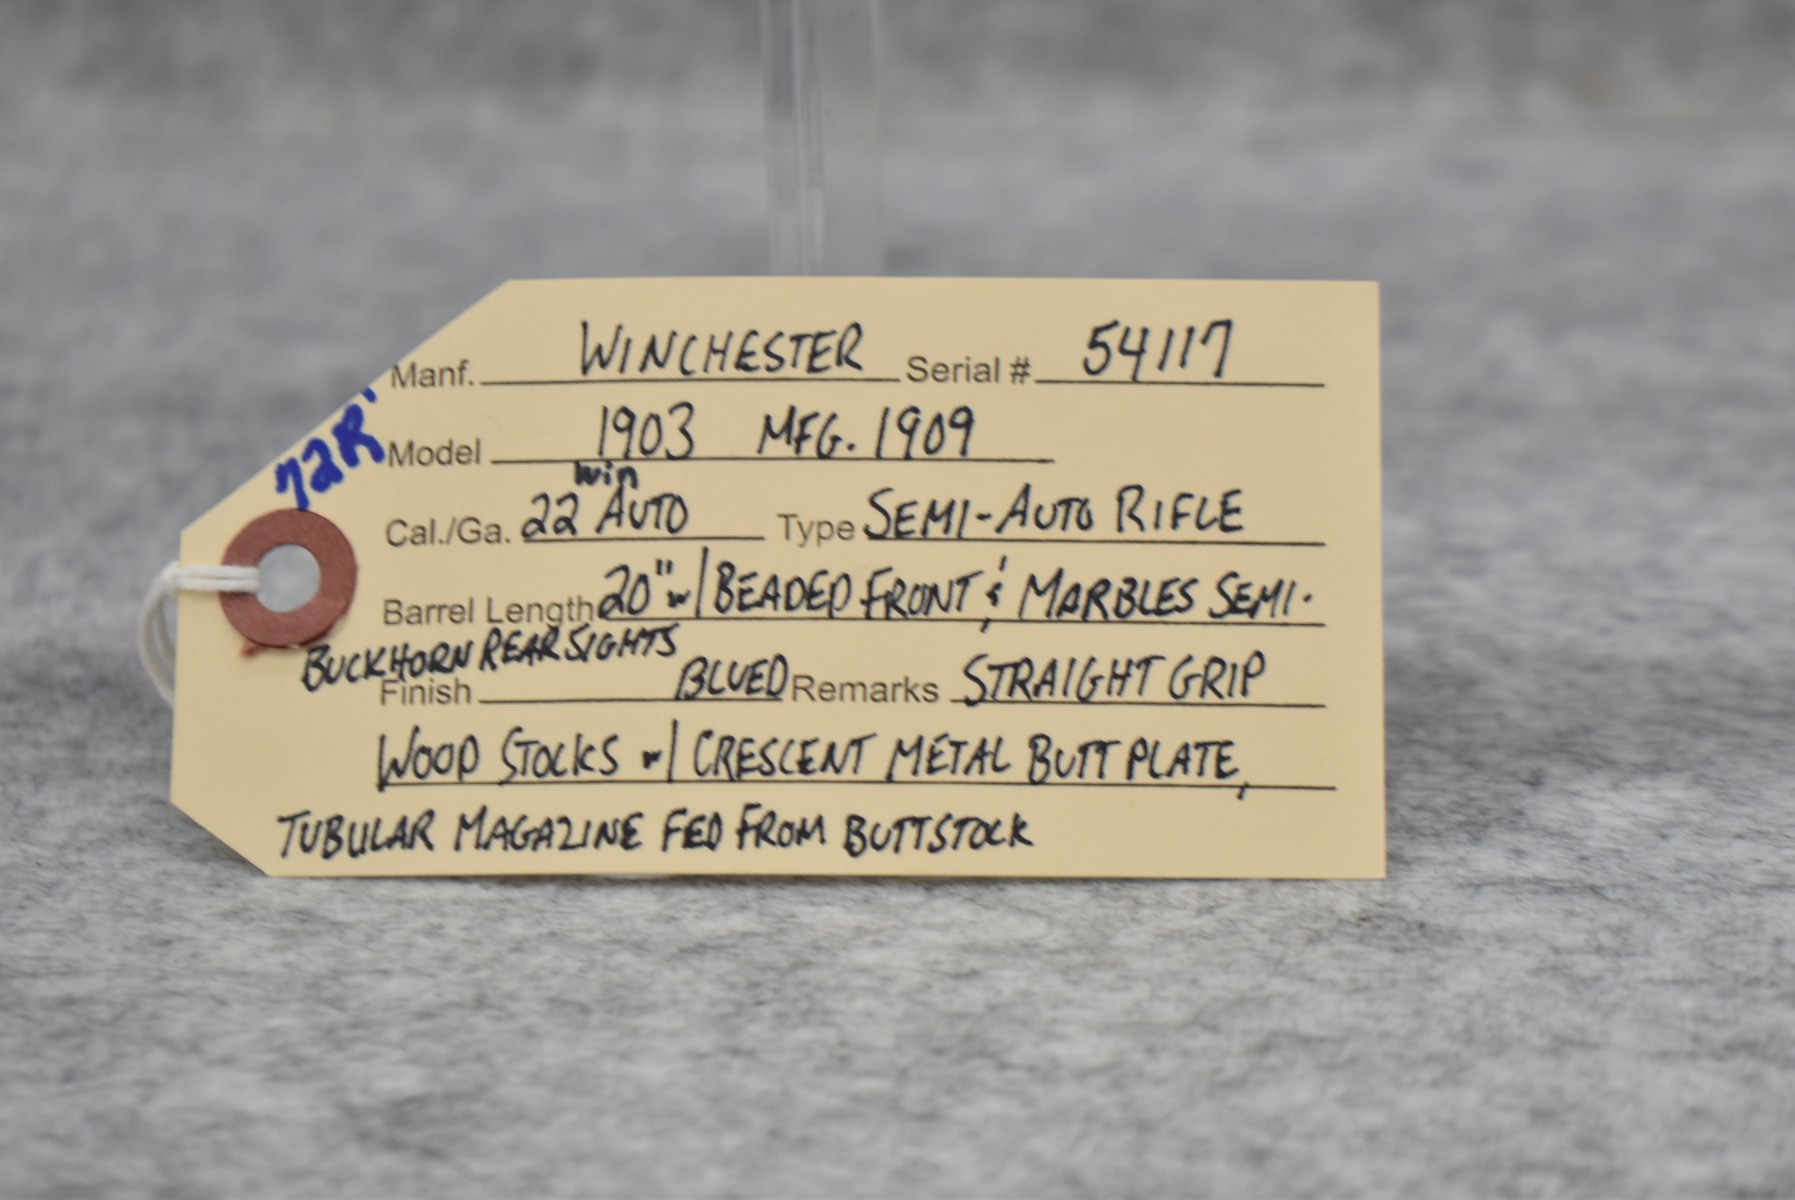 Manf. WINCHESTER Serial # 54117
72R'
Model 1903 MFG. 1909
Win
Cal./Ga. 22 AUTO Type SEMI-AUTO RIFLE
Barrel Length 20" w/ BEADED FRONT, & MARBLES SEMI-
BUCKHORN REAR SIGHTS
Finish BLUED Remarks STRAIGHT GRIP
WOOD STOCKS w/ CRESCENT METAL BUTT PLATE,
TUBULAR MAGAZINE FED FROM BUTTSTOCK